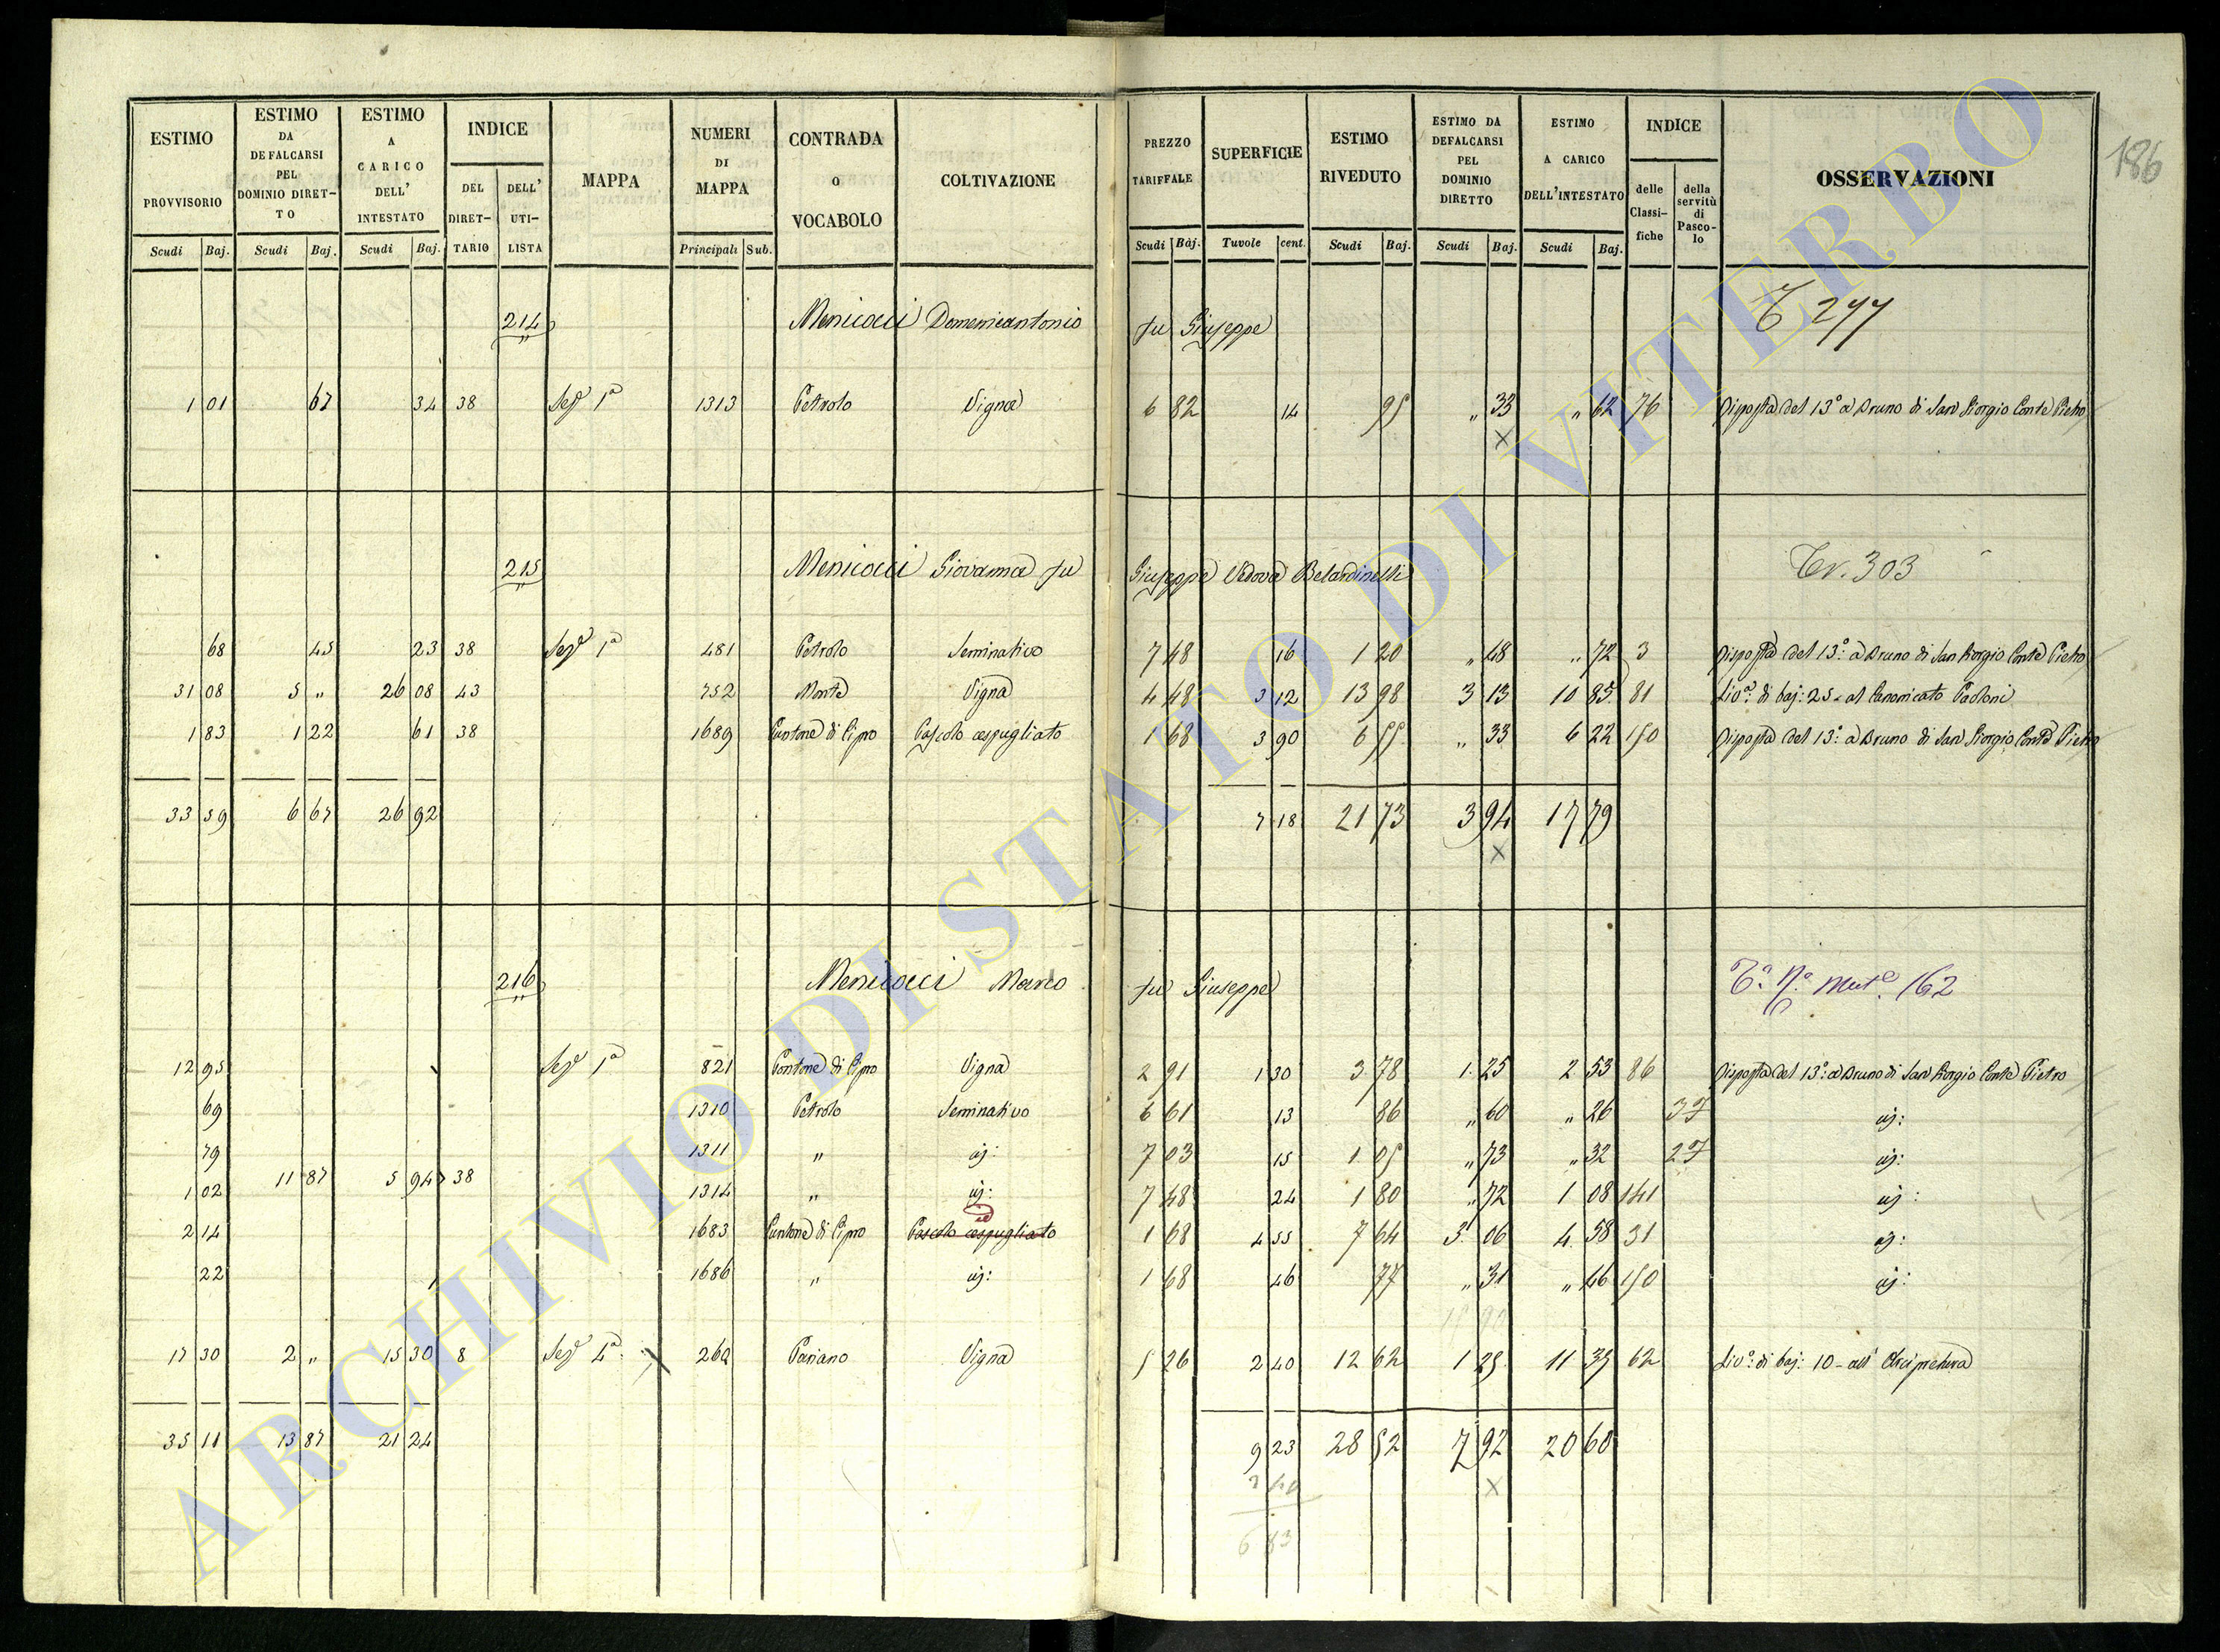 186
ESTIMO PROVVISORIO Scudi Baj.
ESTIMO DA DEFALCARSI PEL DOMINIO DIRETTO Scudi Baj.
ESTIMO A CARICO DELL' INTESTATO Scudi Baj.
INDICE DEL DIRETTARIO DELL' UTILISTA
MAPPA
NUMERI DI MAPPA Principali Sub.
CONTRADA O VOCABOLO
COLTIVAZIONE
PREZZO TARIFFALE Scudi Baj.
SUPERFICIE Tavole cent.
ESTIMO RIVEDUTO Scudi Baj.
ESTIMO DA DEFALCARSI PEL DOMINIO DIRETTO Scudi Baj.
ESTIMO A CARICO DELL'INTESTATO Scudi Baj.
INDICE delle Classifiche della servitù di Pascolo
OSSERVAZIONI
214 Menicacci Domenicantonio fu Giuseppe 277
1 01 67 34 38 Sez. 1a 1313 Petrolo Vigna 6 82 14 95 " 33 " 62 76 Risposta del 13° a Bruno di San Giorgio Conte Pietro
X
215 Menicacci Giovanna fu Giuseppe Vedova Belardinelli 303
68 45 23 38 Sez. 1a 481 Petrolo Seminativo 7 48 16 1 20 " 48 " 72 3 Risposta del 13°: a Bruno di San Giorgio Conte Pietro
31 08 5 " 26 08 43 752 Monte Vigna 4 48 3 12 13 98 3 13 10 85 81 Liv°: di baj: 25 - al Canonicato Paoloni
1 83 1 22 61 38 1689 Puntone di Cipro Pascolo cespugliato 1 68 3 90 6 55 " 33 6 22 150 Risposta del 13°: a Bruno di San Giorgio Conte Pietro
33 59 6 67 26 92 7 18 21 73 3 94 17 79
X
216 Menicacci Marco fu Giuseppe 162
12 95 Sez. 1a 821 Pontone di Cipro Vigna 2 91 1 30 3 78 1 25 2 53 86 Risposta del 13°: a Bruno di San Giorgio Conte Pietro
69 1310 Petrolo Seminativo 6 61 13 86 " 60 " 26
79 1311 " 7 03 15 1 05 " 73 " 32
11 87 5 94 38
1 02 1314 " 7 48 24 1 80 " 72 1 08 141
2 14 1683 Puntone di Cipro Pascolo cespugliato 1 68 4 55 7 64 3 06 4 58 31
22 1686 " 1 68 46 77 " 31 " 46 150
17 30 2 " 15 30 8 Sez. 4a X Pariano Vigna 5 26 2 40 12 62 1 25 11 35 62 Liv°: di baj: 10 - all' Arcipretura
35 11 13 87 21 24 9 23 28 52 7 92 20 60
X
ARCHIVIO DI STATO DI VITERBO